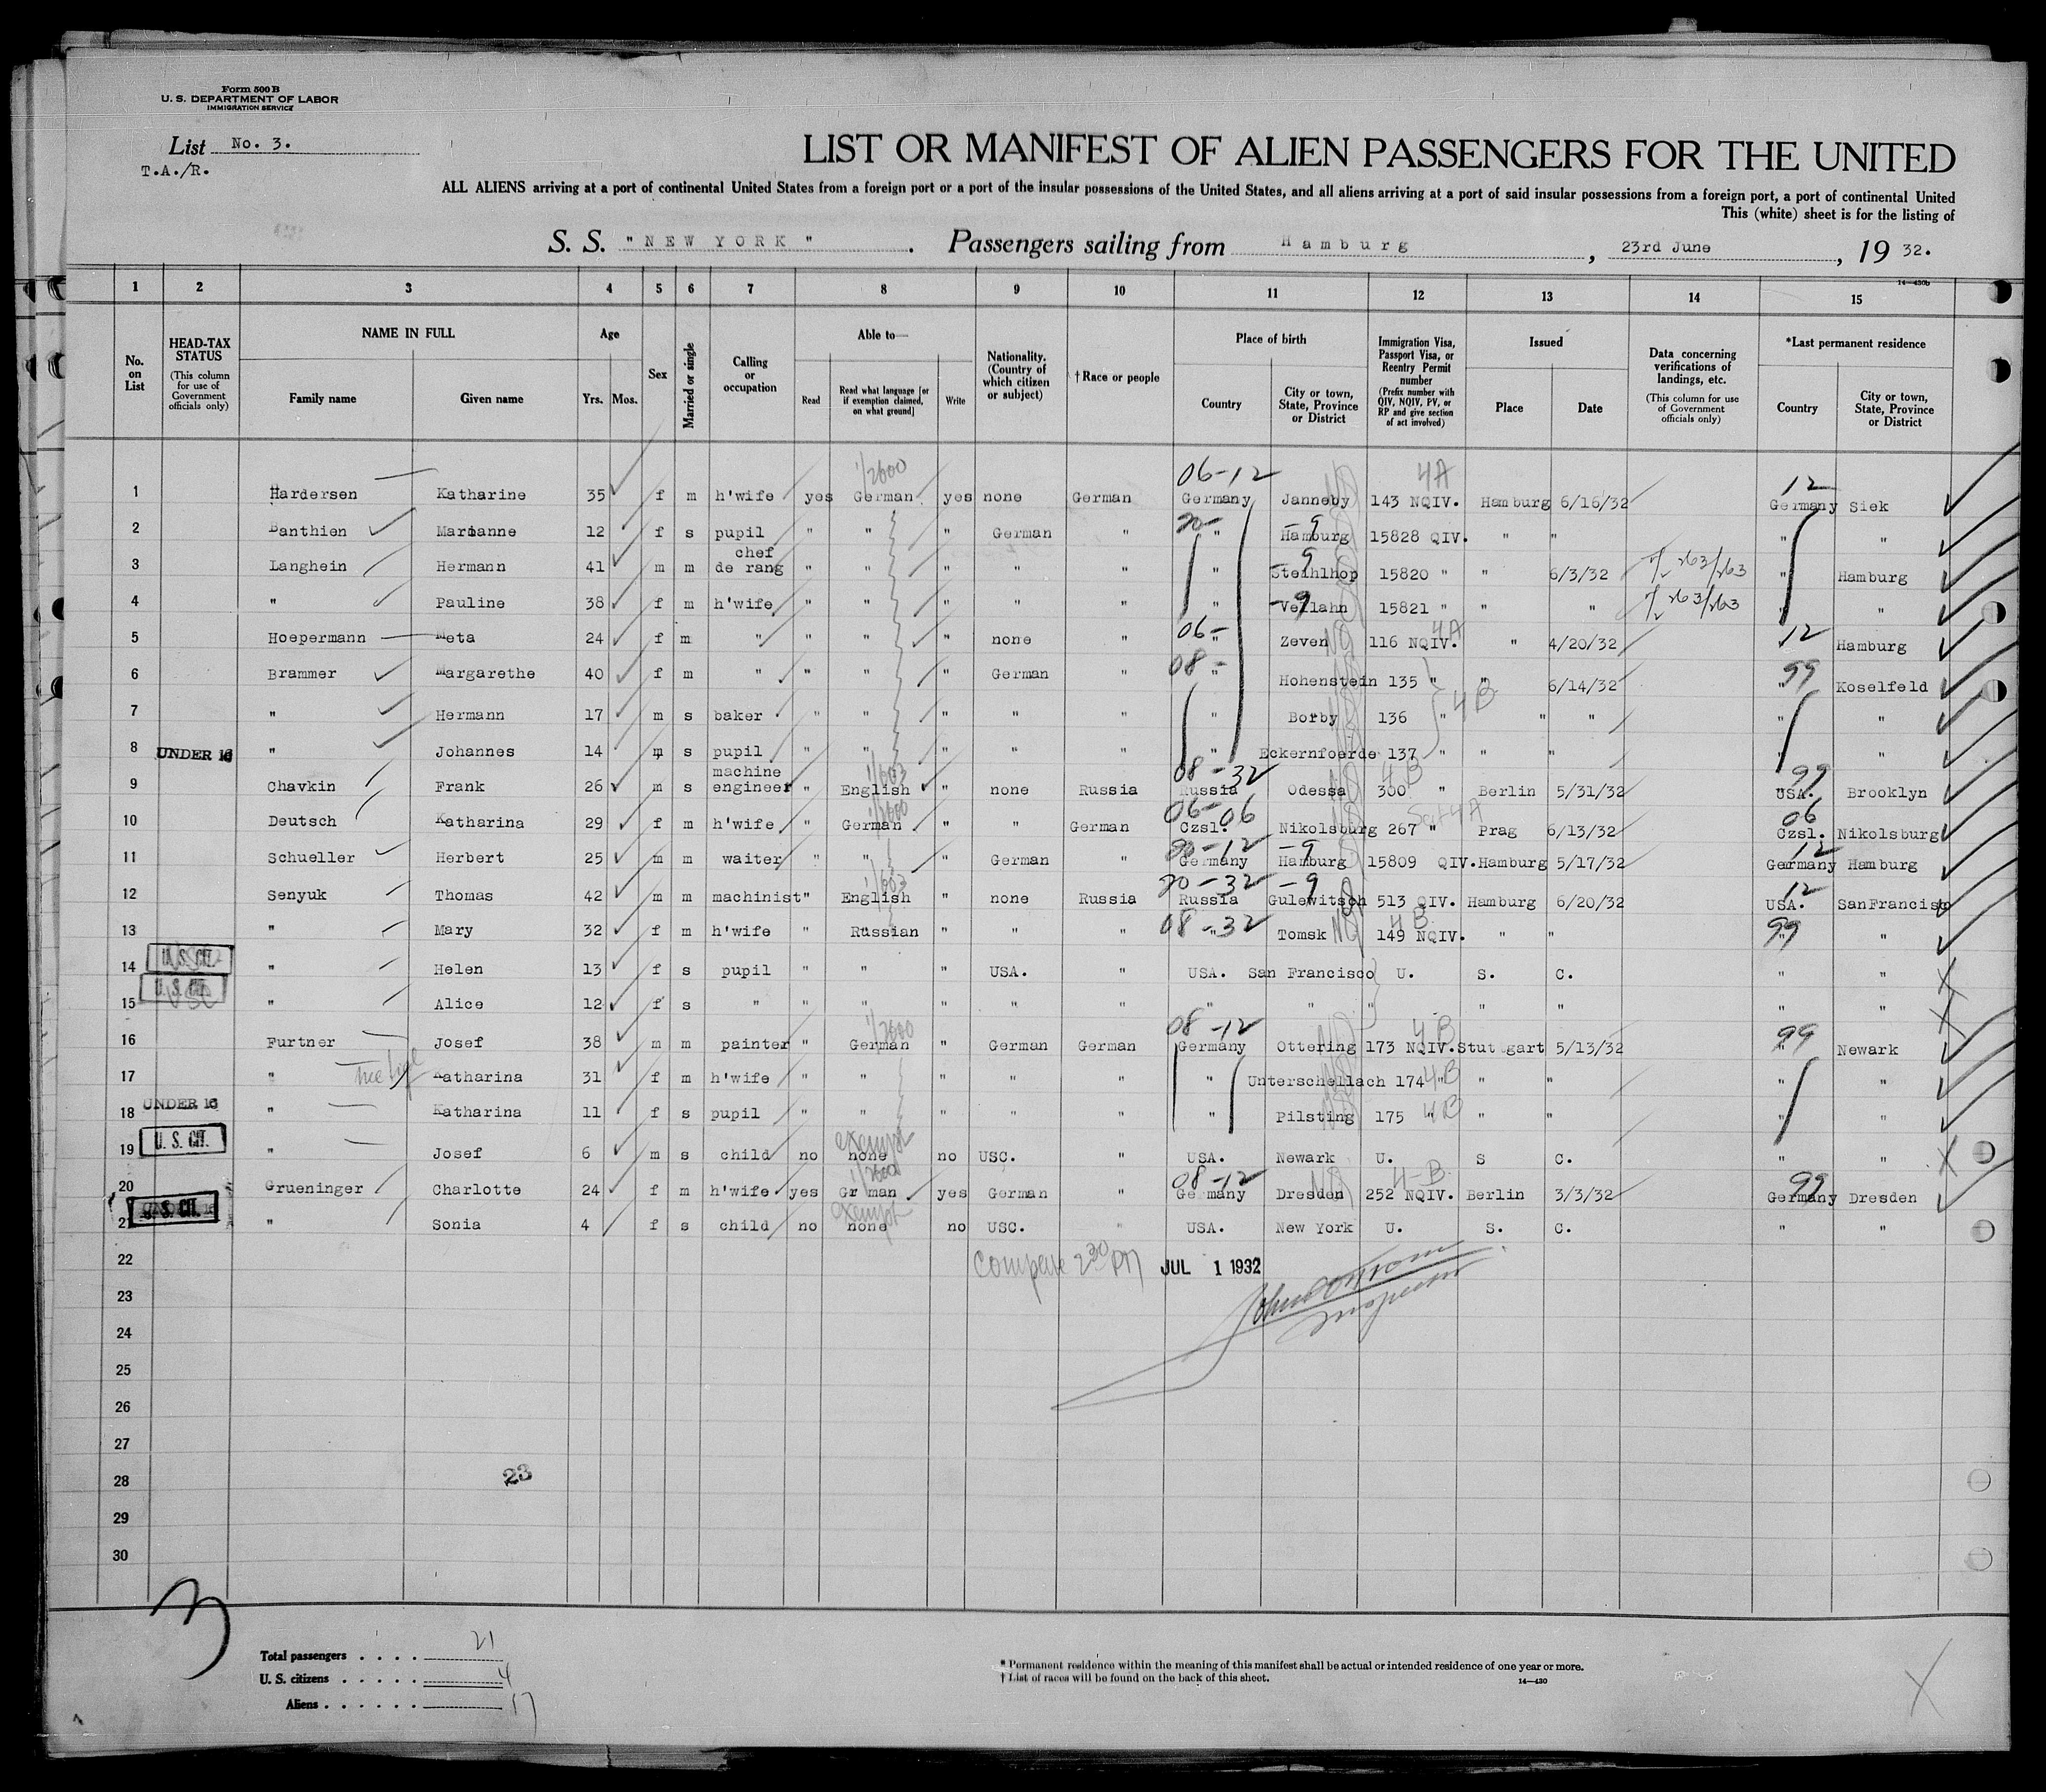 Form 500 B
U. S. DEPARTMENT OF LABOR
IMMIGRATION SERVICE
List No. 3.
T.A./R.
LIST OR MANIFEST OF ALIEN PASSENGERS FOR THE UNITED
ALL ALIENS arriving at a port of continental United States from a foreign port or a port of the insular possessions of the United States, and all aliens arriving at a port of said insular possessions from a foreign port, a port of continental United
This (white) sheet is for the listing of
S. S. " N E W Y O R K " . Passengers sailing from H a m b u r g , 23rd June , 19 32.
14—430b
1 2 3 4 5 6 7 8 9 10 11 12 13 14 15
No. on List
HEAD-TAX STATUS
(This column for use of Government officials only)
NAME IN FULL
Family name Given name
Age
Yrs. Mos.
Sex
Married or single
Calling or occupation
Able to—
Read Read what language [or if exemption claimed, on what ground] Write
Nationality. (Country of which citizen or subject)
†Race or people
Place of birth
Country City or town, State, Province or District
Immigration Visa, Passport Visa, or Reentry Permit number
(Prefix number with QIV, NQIV, PV, or RP and give section of act involved)
Issued
Place Date
Data concerning verifications of landings, etc.
(This column for use of Government officials only)
*Last permanent residence
Country City or town, State, Province or District
1/2600 06-12 4A 12
1 Hardersen Katharine 35 f m h'wife yes German yes none German Germany Janneby 143 NQIV. Hamburg 6/16/32 Germany Siek
20- -9
2 Banthien Marianne 12 f s pupil " " " German " " Hamburg 15828 QIV. " " " "
chef -9
3 Langhein Hermann 41 m m de rang " " " " " " Steihlhop 15820 " " 6/3/32 263/263 " Hamburg
-9
4 " Pauline 38 f m h'wife " " " " " " Vellahn 15821 " " " 263/263 " "
06- 4A 12
5 Hoepermann Meta 24 f m " " " " none " " Zeven 116 NQIV. " 4/20/32 Hamburg
08- 99
6 Brammer Margarethe 40 f m " " " " German " " Hohenstein 135 " " 6/14/32 " Koselfeld
4B
7 " Hermann 17 m s baker " " " " " " Borby 136 " " " " "
8 UNDER 16 " Johannes 14 m s pupil " " " " " " Eckernfoerde 137 " " " " "
machine 1/603 08-32 4B 99
9 Chavkin Frank 26 m s engineer " English " none Russia Russia Odessa 300 " Berlin 5/31/32 USA. Brooklyn
1/2600 06-06 4A 06
10 Deutsch Katharina 29 f m h'wife " German " " German Czsl. Nikolsburg 267 " Prag 6/13/32 Czsl. Nikolsburg
20-12 -9 12
11 Schueller Herbert 25 m m waiter " " " German " Germany Hamburg 15809 QIV. Hamburg 5/17/32 Germany Hamburg
1/603 20-32 -9 12
12 Senyuk Thomas 42 m m machinist " English " none Russia Russia Gulewitsch 513 QIV. Hamburg 6/20/32 USA. SanFrancisco
08-32 4B 99
13 " Mary 32 f m h'wife " Russian " " " " Tomsk 149 NQIV. " " " "
14 U. S. CIT. " Helen 13 f s pupil " " " USA. " USA. San Francisco U. S. C. " "
15 U. S. CIT. USC " Alice 12 f s " " " " " " " " " " " " "
1/2600 08-12 4B 99
16 Furtner Josef 38 m m painter " German " German German Germany Ottering 173 NQIV. Stuttgart 5/13/32 " Newark
17 " Katharina 31 f m h'wife " " " " " " Unterschellach 174 " 4B " " " "
18 UNDER 16 " Katharina 11 f s pupil " " " " " " Pilsting 175 " 4B " " " "
exempt
19 U. S. CIT. " Josef 6 m s child no none no USC. " USA. Newark U. S C. " "
1/2600 08-12 4-B 99
20 Grueninger Charlotte 24 f m h'wife yes Gr man yes German " Germany Dresden 252 NQIV. Berlin 3/3/32 Germany Dresden
exempt
21 U. S. CIT. " Sonia 4 f s child no none no USC. " USA. New York U. S. C. " "
22 230 PM JUL 1 1932
23
24
25
26
27
28 23
29
30
3
Total passengers . . . . 21
U. S. citizens . . . . . 4
Aliens . . . . . . 17
* Permanent residence within the meaning of this manifest shall be actual or intended residence of one year or more.
† List of races will be found on the back of this sheet.
14—430
X